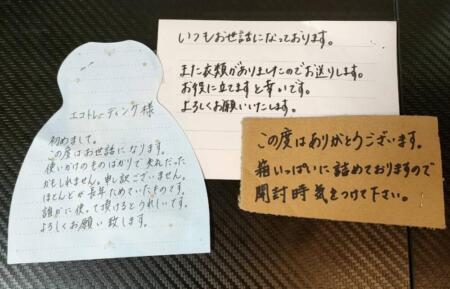 エコトレーディング様
初めまして。
この度はお世話になります。
使いかけのものばかりで失礼だった
かもしれません。申し訳ございません。
ほとんどが長年ためていたものです。
誰かに使って頂けるとうれしいです。
よろしくお願い致します。
いつもお世話になっております。
また衣類がありましたのでお送りします。
お役に立てますと幸いです。
よろしくお願いいたします。
この度はありがとうございます。
箱いっぱいに詰めておりますので
開封時気をつけて下さい。